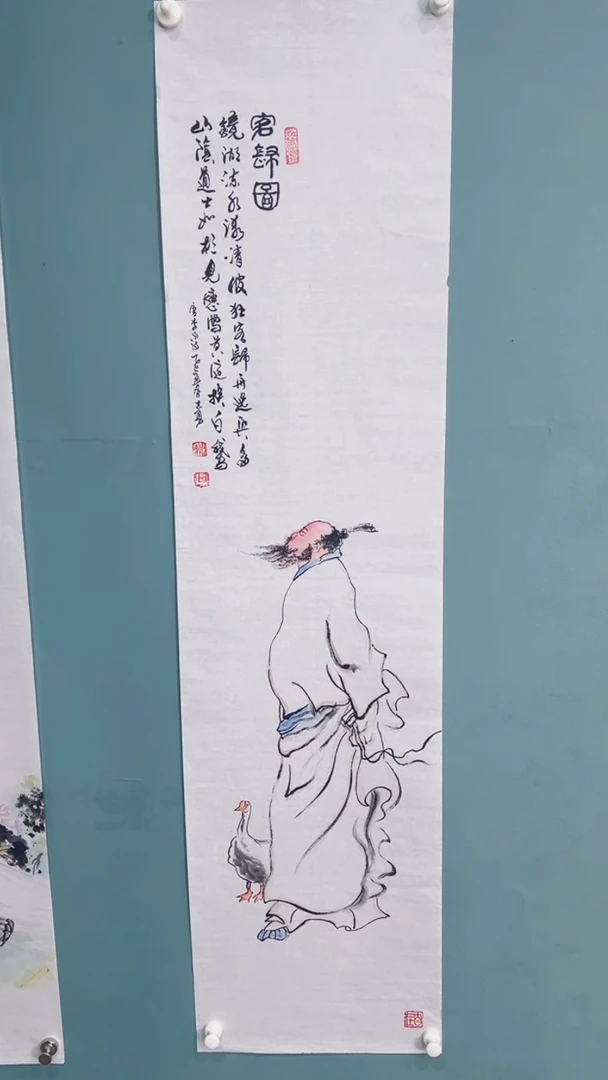 客歸圖
鏡湖流水漾清波狂客歸舟逸興多
山蔭道士如相見應寫黃庭換白鵝
唐李白詩乙巳